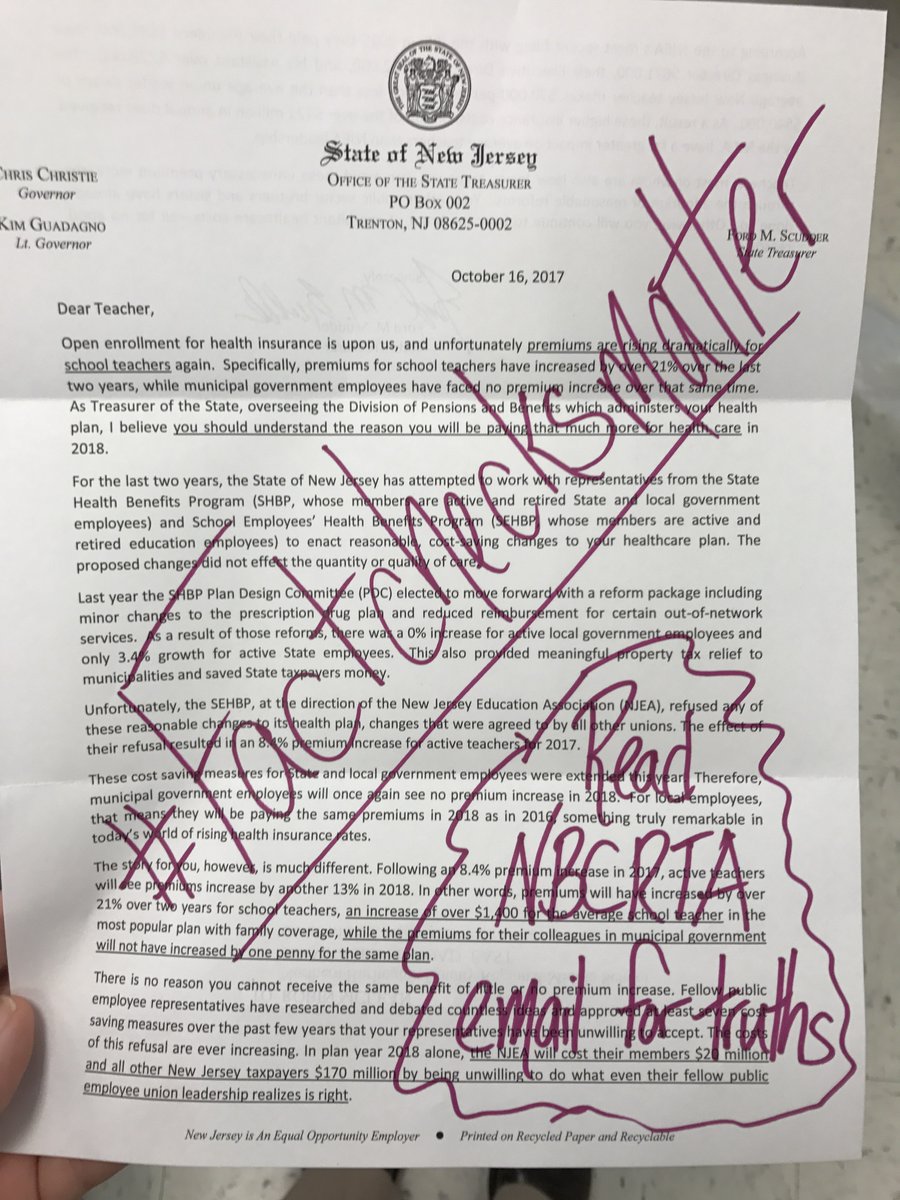 THE GREAT SEAL OF THE STATE OF NEW JERSEY
State of New Jersey
OFFICE OF THE STATE TREASURER
PO BOX 002
TRENTON, NJ 08625-0002
CHRIS CHRISTIE
Governor
KIM GUADAGNO
Lt. Governor
FORD M. SCUDDER
State Treasurer
October 16, 2017
Dear Teacher,
Open enrollment for health insurance is upon us, and unfortunately premiums are rising dramatically for
school teachers again. Specifically, premiums for school teachers have increased by over 21% over the last
two years, while municipal government employees have faced no premium increase over that same time.
As Treasurer of the State, overseeing the Division of Pensions and Benefits which administers your health
plan, I believe you should understand the reason you will be paying that much more for health care in
2018.
For the last two years, the State of New Jersey has attempted to work with representatives from the State
Health Benefits Program (SHBP, whose members are active and retired State and local government
employees) and School Employees' Health Benefits Program (SEHBP, whose members are active and
retired education employees) to enact reasonable, cost-saving changes to your healthcare plan. The
proposed changes did not effect the quantity or quality of care.
Last year the SHBP Plan Design Committee (PDC) elected to move forward with a reform package including
minor changes to the prescription drug plan and reduced reimbursement for certain out-of-network
services. As a result of those reforms, there was a 0% increase for active local government employees and
only 3.4% growth for active State employees. This also provided meaningful property tax relief to
municipalities and saved State taxpayers money.
Unfortunately, the SEHBP, at the direction of the New Jersey Education Association (NJEA), refused any of
these reasonable changes to its health plan, changes that were agreed to by all other unions. The effect of
their refusal resulted in an 8.4% premium increase for active teachers for 2017.
These cost saving measures for State and local government employees were extended this year. Therefore,
municipal government employees will once again see no premium increase in 2018. For local employees,
that means they will be paying the same premiums in 2018 as in 2016, something truly remarkable in
today's world of rising health insurance rates.
The story for you, however, is much different. Following an 8.4% premium increase in 2017, active teachers
will see premiums increase by another 13% in 2018. In other words, premiums will have increased by over
21% over two years for school teachers, an increase of over $1,400 for the average school teacher in the
most popular plan with family coverage, while the premiums for their colleagues in municipal government
will not have increased by one penny for the same plan.
There is no reason you cannot receive the same benefit of little or no premium increase. Fellow public
employee representatives have researched and debated countless ideas and approved at least seven cost
saving measures over the past few years that your representatives have been unwilling to accept. The costs
of this refusal are ever increasing. In plan year 2018 alone, the NJEA will cost their members $20 million
and all other New Jersey taxpayers $170 million by being unwilling to do what even their fellow public
employee union leadership realizes is right.
New Jersey is An Equal Opportunity Employer • Printed on Recycled Paper and Recyclable
#factchecksmatter
Read
NBCRTA
email for truths